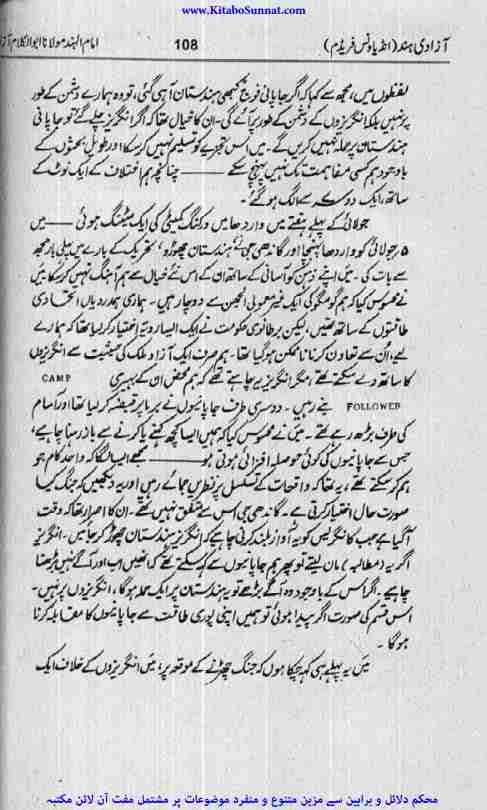 www.KitaboSunnat.com
آزادی ہند (انڈیا ونس فریڈم)
108
امام الہند مولانا ابوالکلام آزاد
لفظوں میں، مجھ سے کہا کہ اگر جاپانی فوج کبھی ہندستان آ ہی گئی، تو وہ ہمارے دشمن کے طور
پر نہیں بلکہ انگریزوں کے دشمن کے طور پر آئے گی۔ ان کا خیال تھا کہ اگر انگریز چلے گئے تو جاپانی
ہندستان پر حملہ نہیں کریں گے۔ میں اس تجزیے کو تسلیم نہیں کر سکا اور طویل بحثوں کے
باوجود ہم کسی مفاہمت تک نہیں پہنچ سکے —— چنانچہ ہم اختلاف کے ایک نوٹ کے
ساتھ، ایک دوسرے سے الگ ہو گئے۔
جولائی کے پہلے ہفتے میں واردھا میں ورکنگ کمیٹی کی ایک میٹنگ ہوئی —— میں
۵ جولائی کو واردھا پہنچا اور گاندھی جی نے 'ہندستان چھوڑو' تحریک کے بارے میں پہلی بار مجھ
سے بات کی۔ میں اپنے ذہن کو آسانی کے ساتھ ان کے اس نئے خیال سے ہم آہنگ نہیں کر سکا۔ میں
نے محسوس کیا کہ ہم گومگو کی ایک غیر معمولی الجھن سے دوچار ہیں۔ ہماری ہمدردیاں اتحادی
طاقتوں کے ساتھ تھیں، لیکن برطانوی حکومت نے ایک ایسا رویہ اختیار کر لیا تھا کہ ہمارے
لیے، اُن سے تعاون کرنا ناممکن ہو گیا تھا۔ ہم صرف ایک آزاد ملک کی حیثیت سے انگریزوں
کا ساتھ دے سکتے تھے، مگر انگریز یہ چاہتے تھے کہ ہم محض ان کے بہیری CAMP
FOLLOWER بنے رہیں۔ دوسری طرف جاپانیوں نے برما پر قبضہ کر لیا تھا اور آسام
کی طرف بڑھ رہے تھے۔ میں نے محسوس کیا کہ ہمیں ایسا کچھ کہنے یا کرنے سے باز رہنا چاہیے،
جس سے جاپانیوں کی کوئی حوصلہ افزائی ہوتی ہو —— مجھے ایسا لگا کہ واحد کام جو
ہم کر سکتے تھے، یہ تھا کہ واقعات کے تسلسل پر نظریں جمائے رہیں اور یہ دیکھیں کہ جنگ کیا
صورت حال اختیار کرتی ہے۔ گاندھی جی اس سے متفق نہیں تھے۔ ان کا اصرار تھا کہ وقت
آ گیا ہے جب کانگریس کو یہ آواز بلند کرنی چاہیے کہ انگریز ہندستان چھوڑ کر جائیں۔ انگریز
اگر یہ (مطالبہ) مان لیتے تو پھر ہم جاپانیوں سے کہہ سکتے تھے کہ انھیں اب اور آگے نہیں بڑھنا
چاہیے۔ اگر اس کے باوجود وہ آگے بڑھے تو یہ ہندستان پر ایک حملہ ہوگا، انگریزوں پر نہیں۔
اس قسم کی صورت اگر پیدا ہوئی تو ہمیں اپنی پوری طاقت سے جاپانیوں کا مقابلہ کرنا
ہوگا۔
میں یہ پہلے ہی کہہ چکا ہوں کہ جنگ چھڑنے کے موقعہ پر، میں انگریزوں کے خلاف ایک
محکم دلائل و براہین سے مزین متنوع و منفرد موضوعات پر مشتمل مفت آن لائن مکتبہ